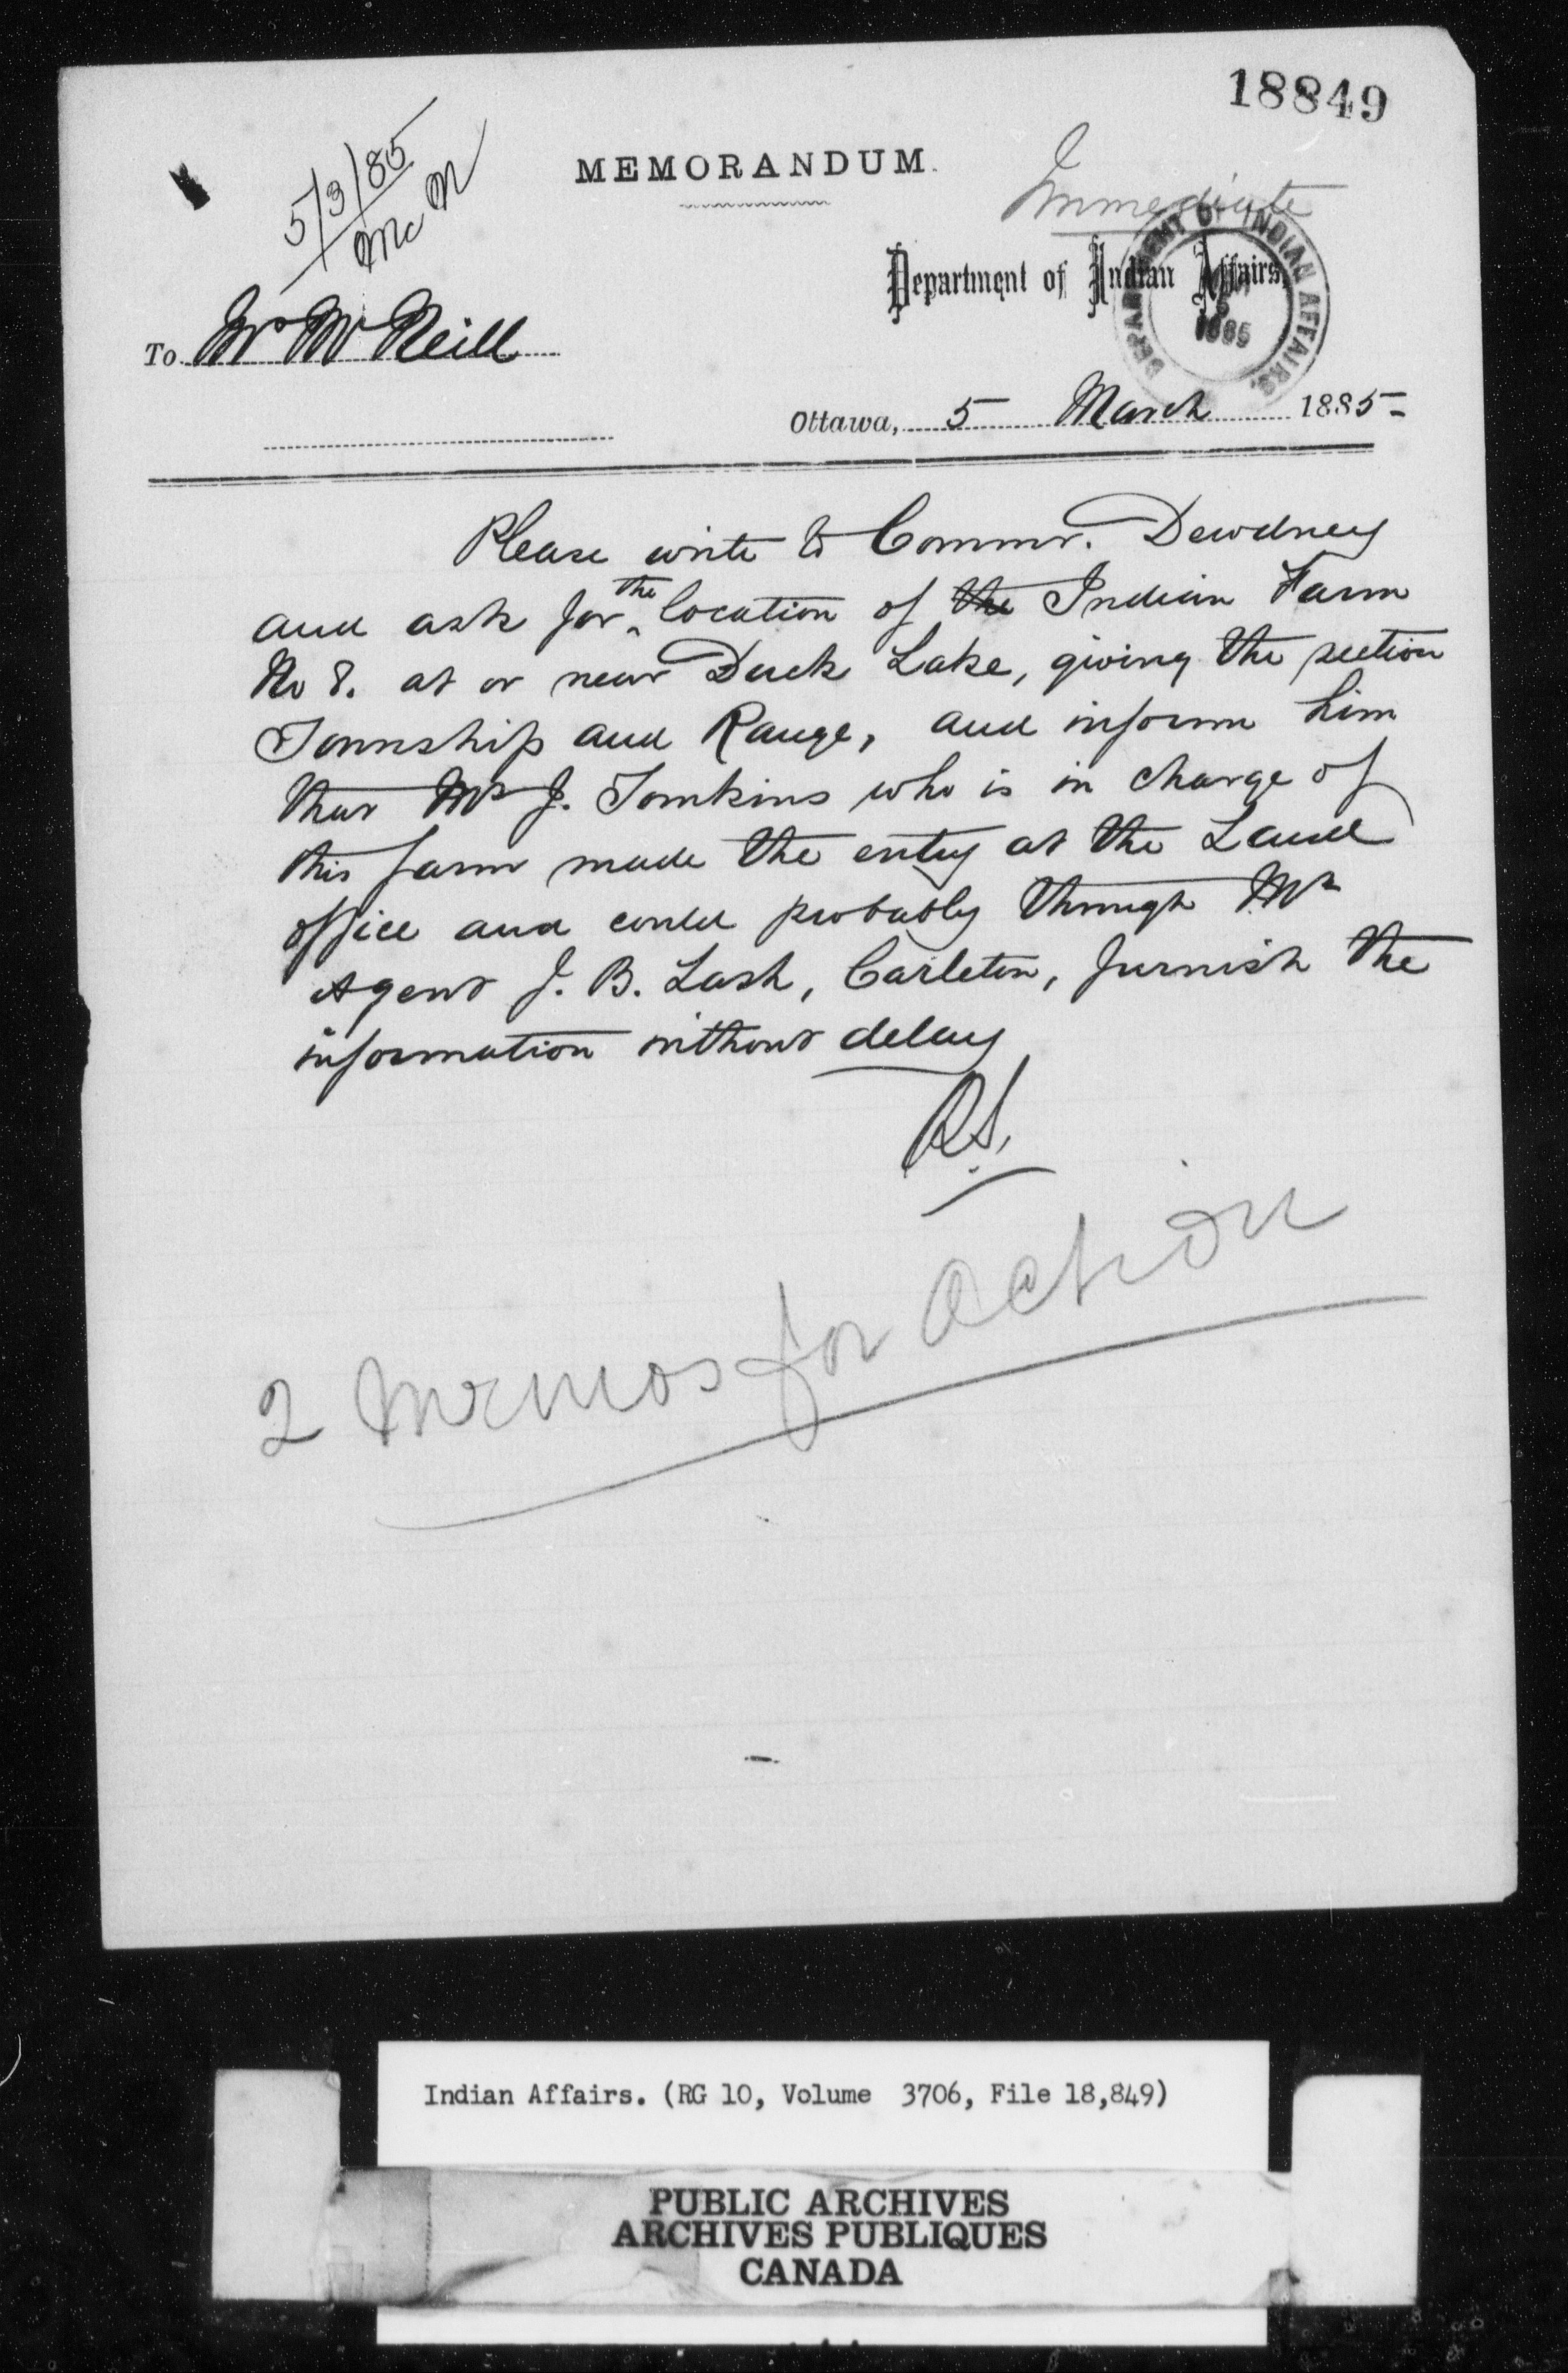 18849
5/3/85
McN
MEMORANDUM.
Immediate
Department of Indian Affairs,
DEPARTMENT OF INDIAN AFFAIRS.
5
1885
To Mr McNeill
Ottawa, 5 March 1885
Please write to Commr. Dewdney
and ask for the location of the Indian Farm
No 8. at or near Duck Lake, giving the section
Township and Range, and inform him
that Mr J. Tomkins who is in charge of
this farm made the entry at the Land
office and could probably through Mr
Agent J. B. Lash, Carleton, furnish the
information without delay
R.S.
2 memos for action
Indian Affairs. (RG 10, Volume 3706, File 18,849)
PUBLIC ARCHIVES
ARCHIVES PUBLIQUES
CANADA